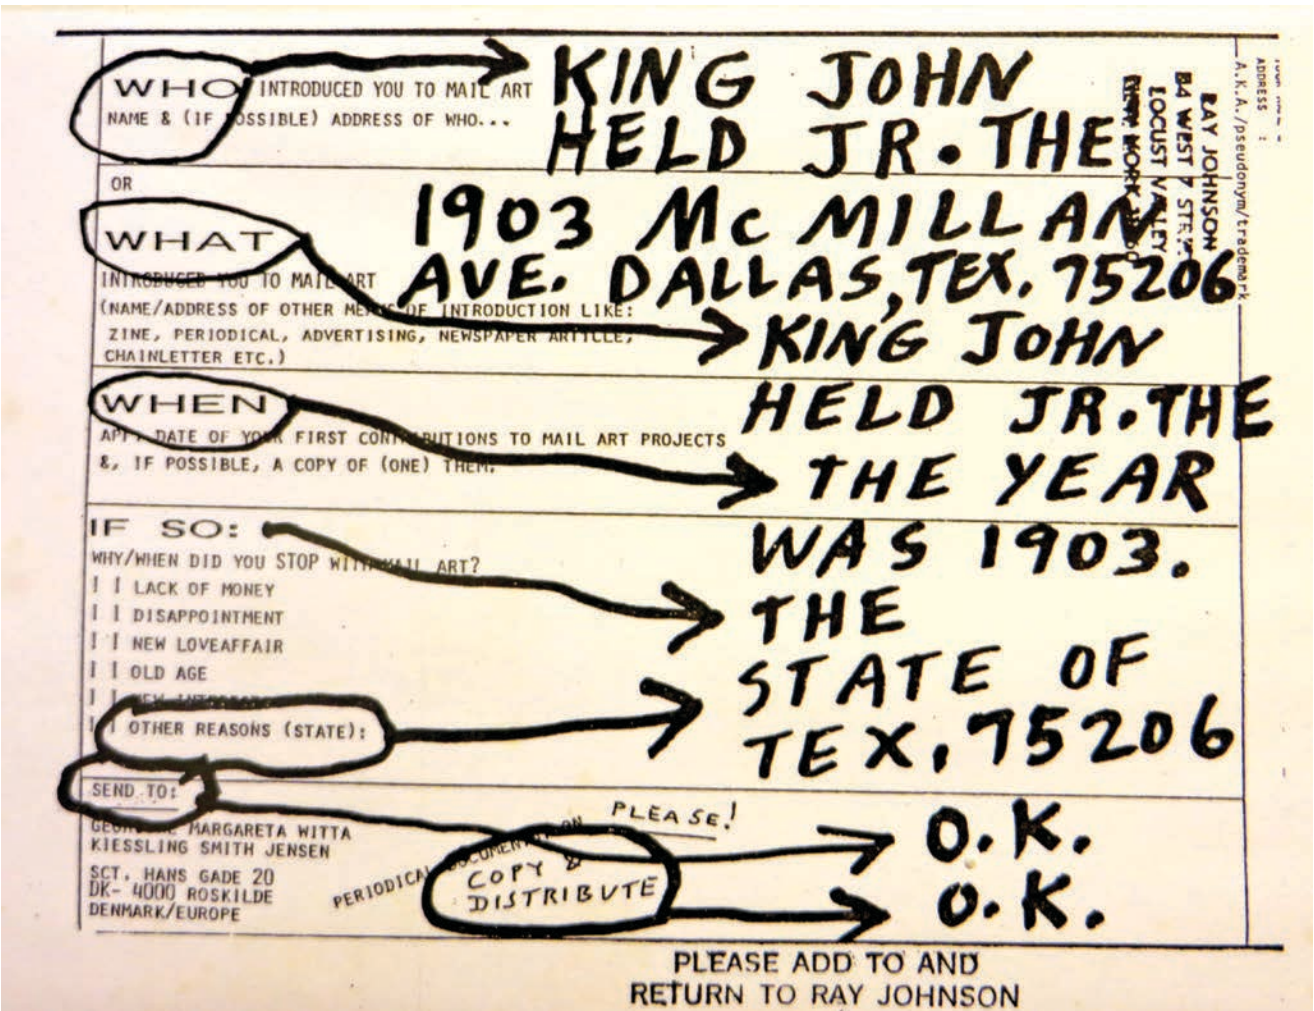 WHO INTRODUCED YOU TO MAIL ART
NAME & (IF POSSIBLE) ADDRESS OF WHO...
KING JOHN
HELD JR. THE
OR
WHAT
INTRODUCED YOU TO MAIL ART
(NAME/ADDRESS OF OTHER MEANS OF INTRODUCTION LIKE:
ZINE, PERIODICAL, ADVERTISING, NEWSPAPER ARTICLE,
CHAINLETTER ETC.)
1903 McMILLAN
AVE. DALLAS, TEX. 75206
KING JOHN
HELD JR. THE
WHEN
DATE OF YOUR FIRST CONTRIBUTIONS TO MAIL ART PROJECTS
&, IF POSSIBLE, A COPY OF (ONE) THEM.
THE YEAR
WAS 1903.
IF SO:
WHY/WHEN DID YOU STOP WITH MAIL ART?
[ ] LACK OF MONEY
[ ] DISAPPOINTMENT
[ ] NEW LOVEAFFAIR
[ ] OLD AGE
[ ] NEW
[ ] OTHER REASONS (STATE):
THE
STATE OF
TEX. 75206
SEND TO:
MARGARETA WITTA
KIESSLING SMITH JENSEN
SCT. HANS GADE 20
DK- 4000 ROSKILDE
DENMARK/EUROPE
PERIODICAL DOCUMENTATION
PLEASE!
COPY &
DISTRIBUTE
O.K.
O.K.
ADDRESS :
A.K.A./pseudonym/trademark
RAY JOHNSON
WEST 7 STR
LOCUST VALLEY
NEW YORK
PLEASE ADD TO AND
RETURN TO RAY JOHNSON